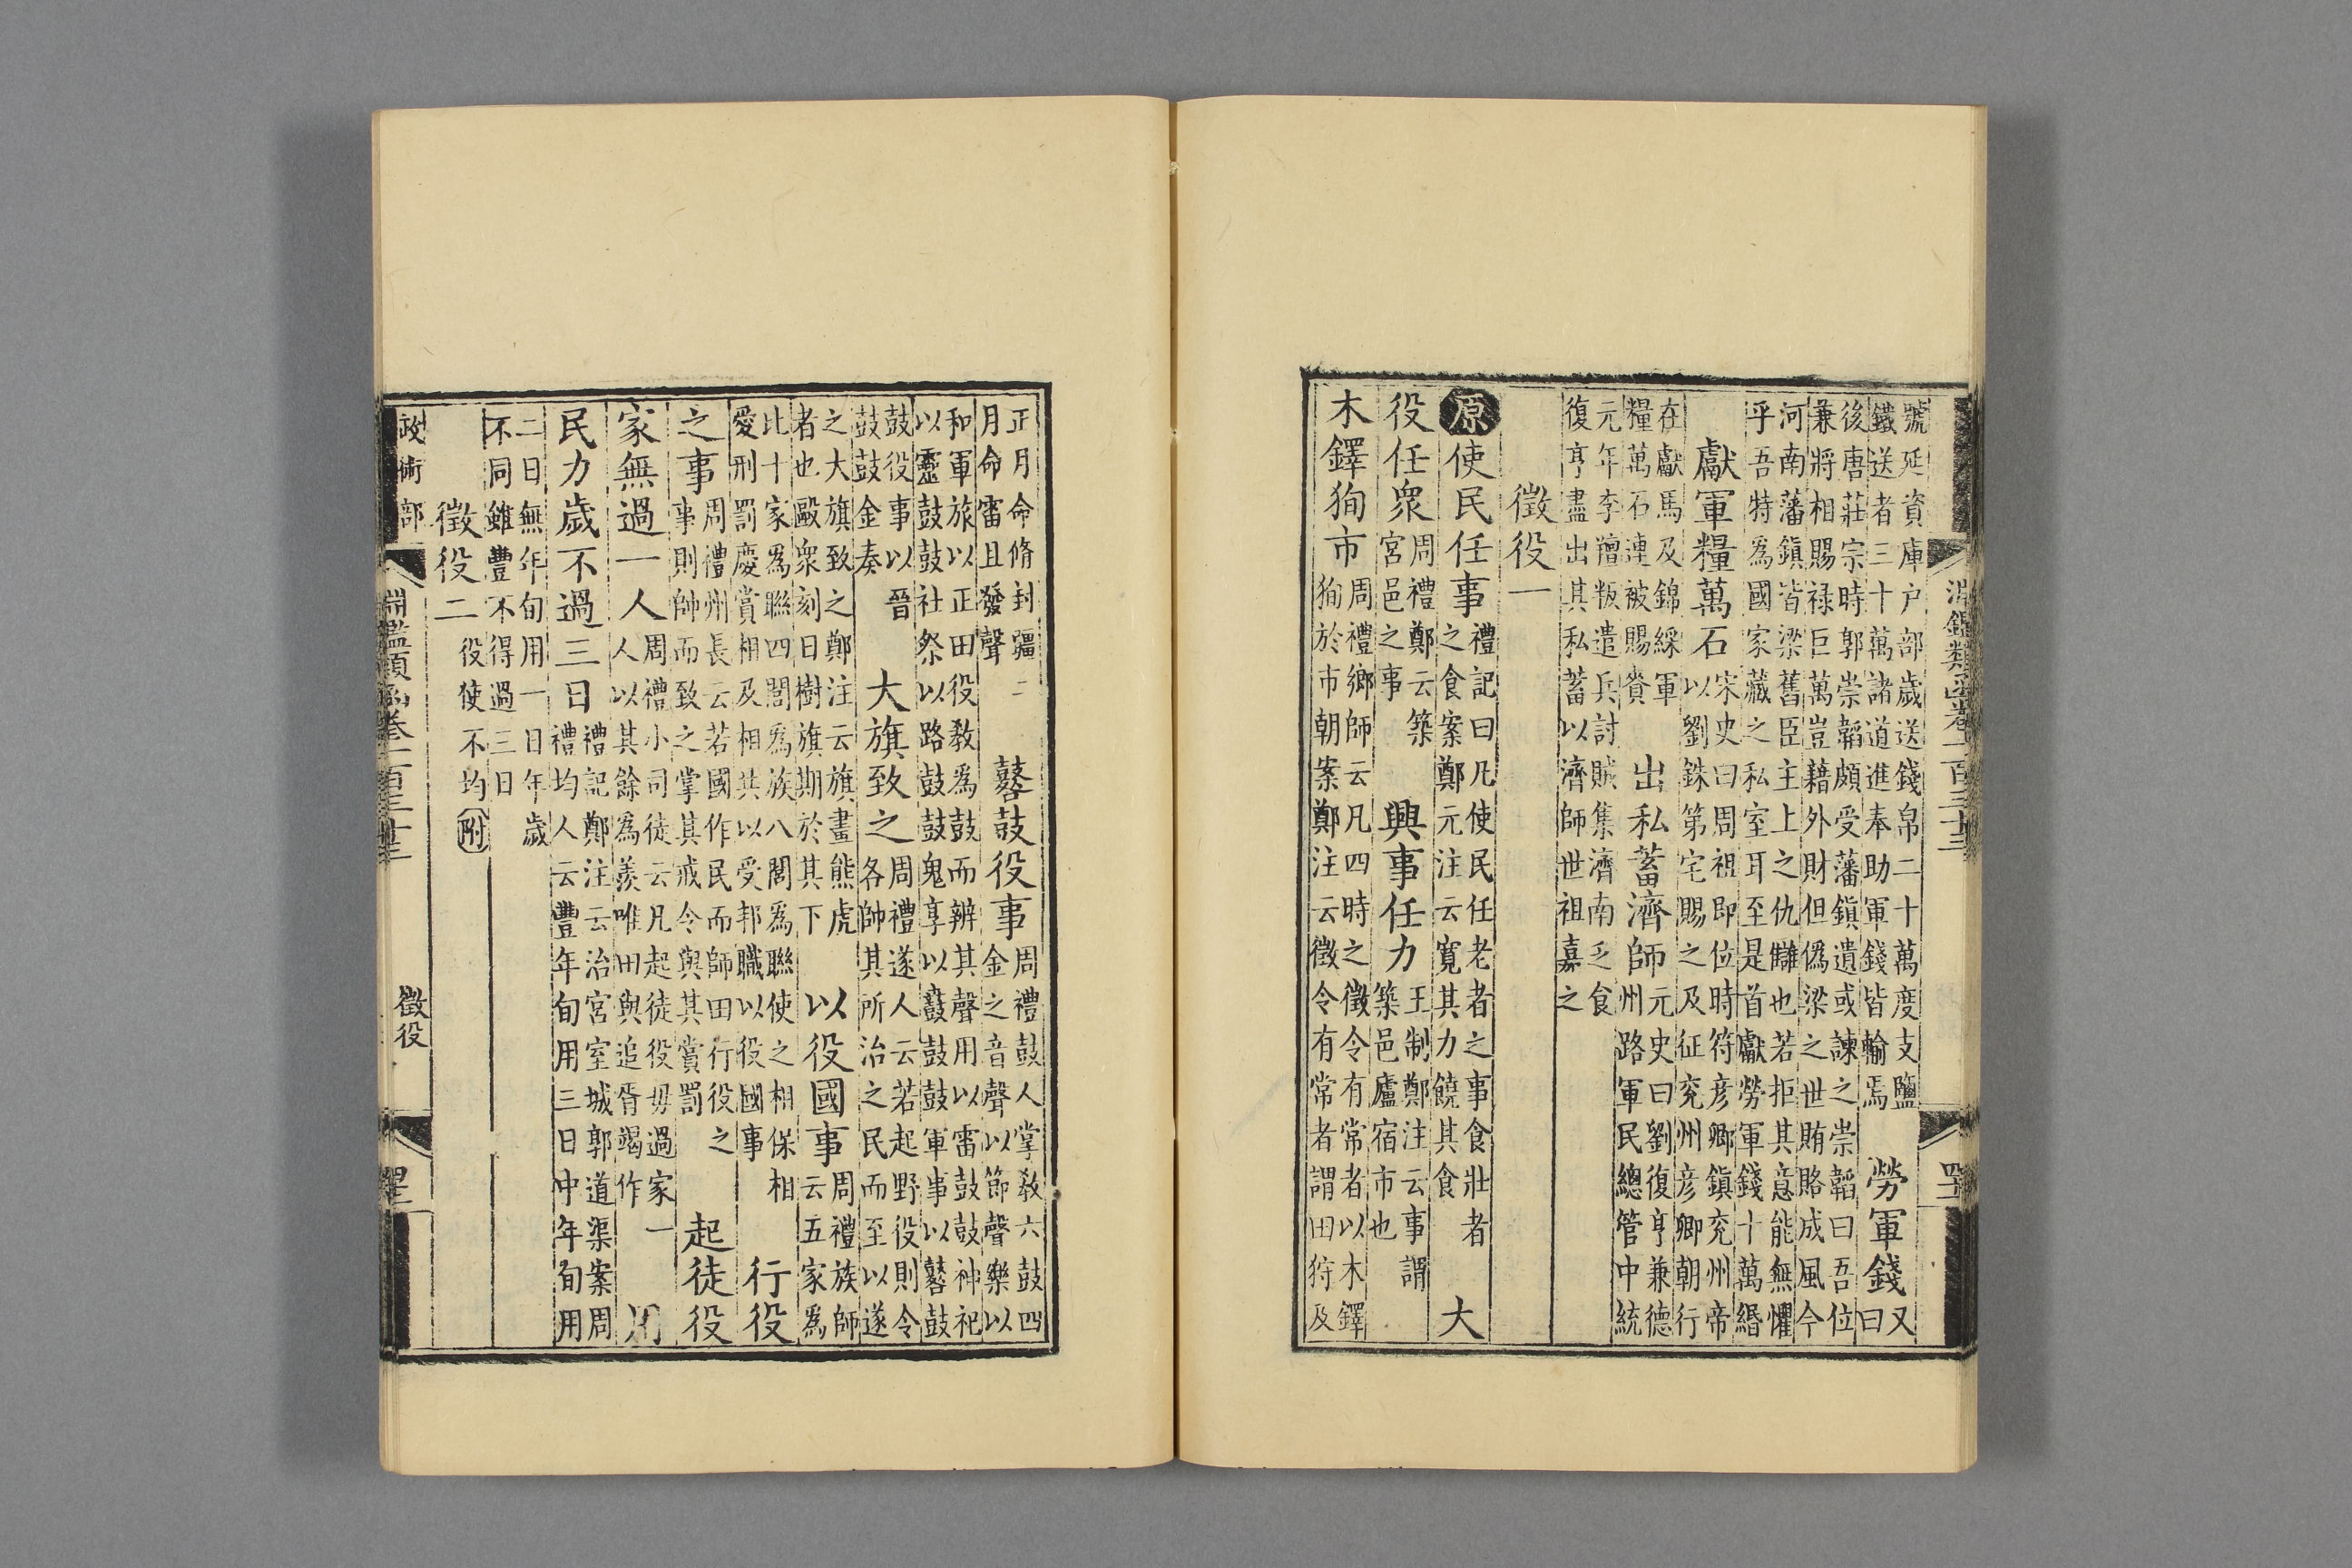 淵鑑類函卷一百三十三
號延資庫户部歲送錢帛二十萬度支鹽
鐵送者三十萬諸道進奉助軍錢皆輸焉
勞軍錢
又曰
後唐莊宗時郭崇韜頗受藩鎮遺或諫之崇韜曰吾位
兼將相賜禄巨萬豈藉外財但僞梁之世賄賂成風今
河南藩鎮皆梁舊臣主上之仇讎也若拒其意能無懼
乎吾特爲國家藏之私室耳至是首獻勞軍錢十萬緡
獻軍糧萬石
宋史曰周祖即位時符彦卿鎮兖州帝
以劉銖第宅賜之及征兖州彦卿朝行
在獻馬及錦綵軍
糧萬石連被賜賚
出私蓄濟師
元史曰劉復亨兼德
州路軍民總管中統
元年李璮叛遣兵討賊集濟南乏食
復亨盡出其私蓄以濟師世祖嘉之
徵役一
原使民任事
禮記曰凡使民任老者之事食壯者
之食案鄭元注云寛其力饒其食
大
役任衆
周禮鄭云築
宮邑之事
興事任力
王制鄭注云事謂
築邑廬宿市也
木鐸狥市
周禮鄉師云凡四時之徵令有常者以木鐸
狥於市朝案鄭注云徵令有常者謂田狩及
正月命脩封疆二
月命雷且發聲
鼛鼓役事
周禮鼓人掌教六鼓四
金之音聲以節聲樂以
和軍旅以正田役教爲鼓而辨其聲用以雷鼓鼓神祀
以靈鼓鼓社祭以路鼓鼓鬼享以鼖鼓鼓軍事以鼛鼓
鼓役事以晉
鼓鼓金奏
大旗致之
周禮遂人云若起野役則令
各帥其所治之民而至以遂
之大旗致之鄭注云旗畫熊虎
者也毆衆刻日樹旗期於其下
以役國事
周禮族師
云五家爲
比十家爲聯四閭爲族八閭爲聯使之相保相
愛刑罰慶賞相及相共以受邦職以役國事
行役
之事
周禮州長云若國作民而師田行役之
事則帥而致之掌其戒令與其賞罰
起徒役
家無過一人
周禮小司徒云凡起徒役毋過家一
人以其餘爲羨唯田與追胥竭作
用
民力歲不過三日
禮記鄭注云治宮室城郭道渠案周
禮均人云豐年旬用三日中年旬用
二日無年旬用一日年歲
不同雖豐不得過三日
徵役二
役使不均附
政術部
淵鑑類函卷一百三十三
徵役